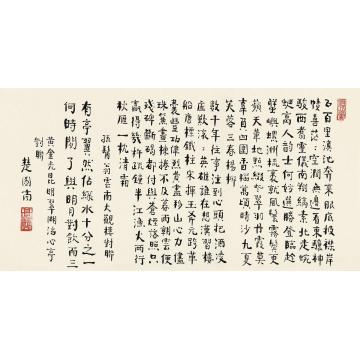 五百里滇池奔來眼底披襟岸
幘喜茫々空闊無邊看東驤神
駿西翥靈儀南翔縞素北走蜿
蜒高人韻士何妨選勝登臨趁
蟹嶼螺洲梳裹就風鬟霧鬢更
蘋天葦地點綴些翠羽丹霞莫
辜負四圍香稻萬頃晴沙九夏
芙蓉三春楊柳
數千年往事注到心頭把酒凌
虛歎滾々英雄誰在想漢習樓
船唐標鐵柱宋揮玉斧元跨革
囊豐功偉烈費盡移山心力儘
珠簾畫棟捲不及暮雨朝雲便
殘碑斷碣都付與蒼煙落照只
贏得幾杵疏鐘半江漁火兩行
秋雁一枕清霜
孫髯翁雲南大觀樓對聯
有亭翼然佔綠水十分之一
何時閒了與明月對飲而三
黃奎光昆明翠湖湖心亭
對聯
楚圖南